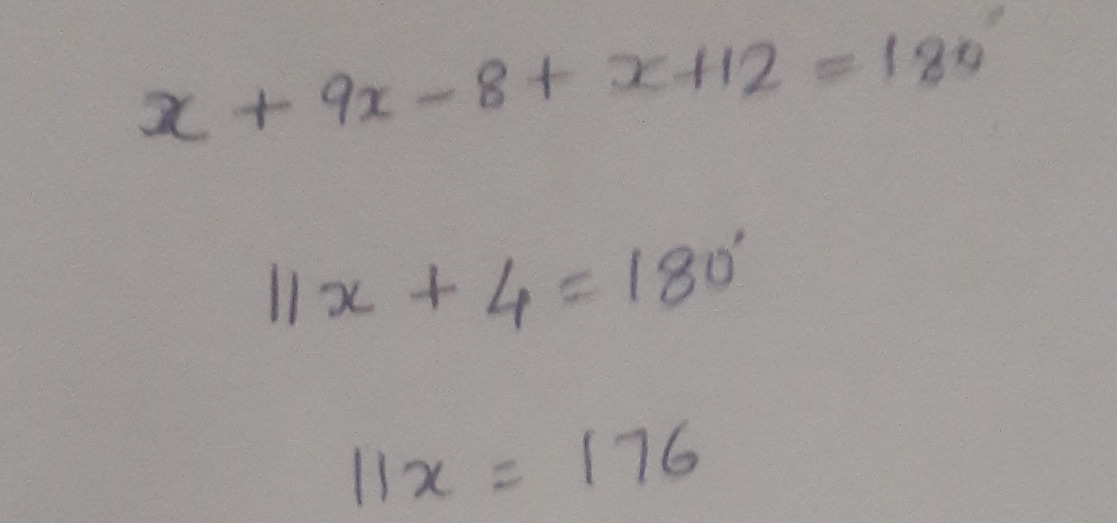 x + 9x - 8 + x + 12 = 180°
11x + 4 = 180°
11x = 176